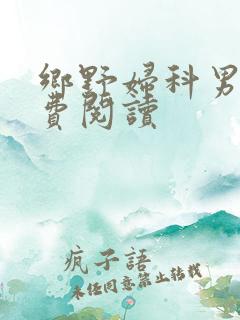 鄉野婦科男
費閱讀
疯子語
未经同意禁止转载